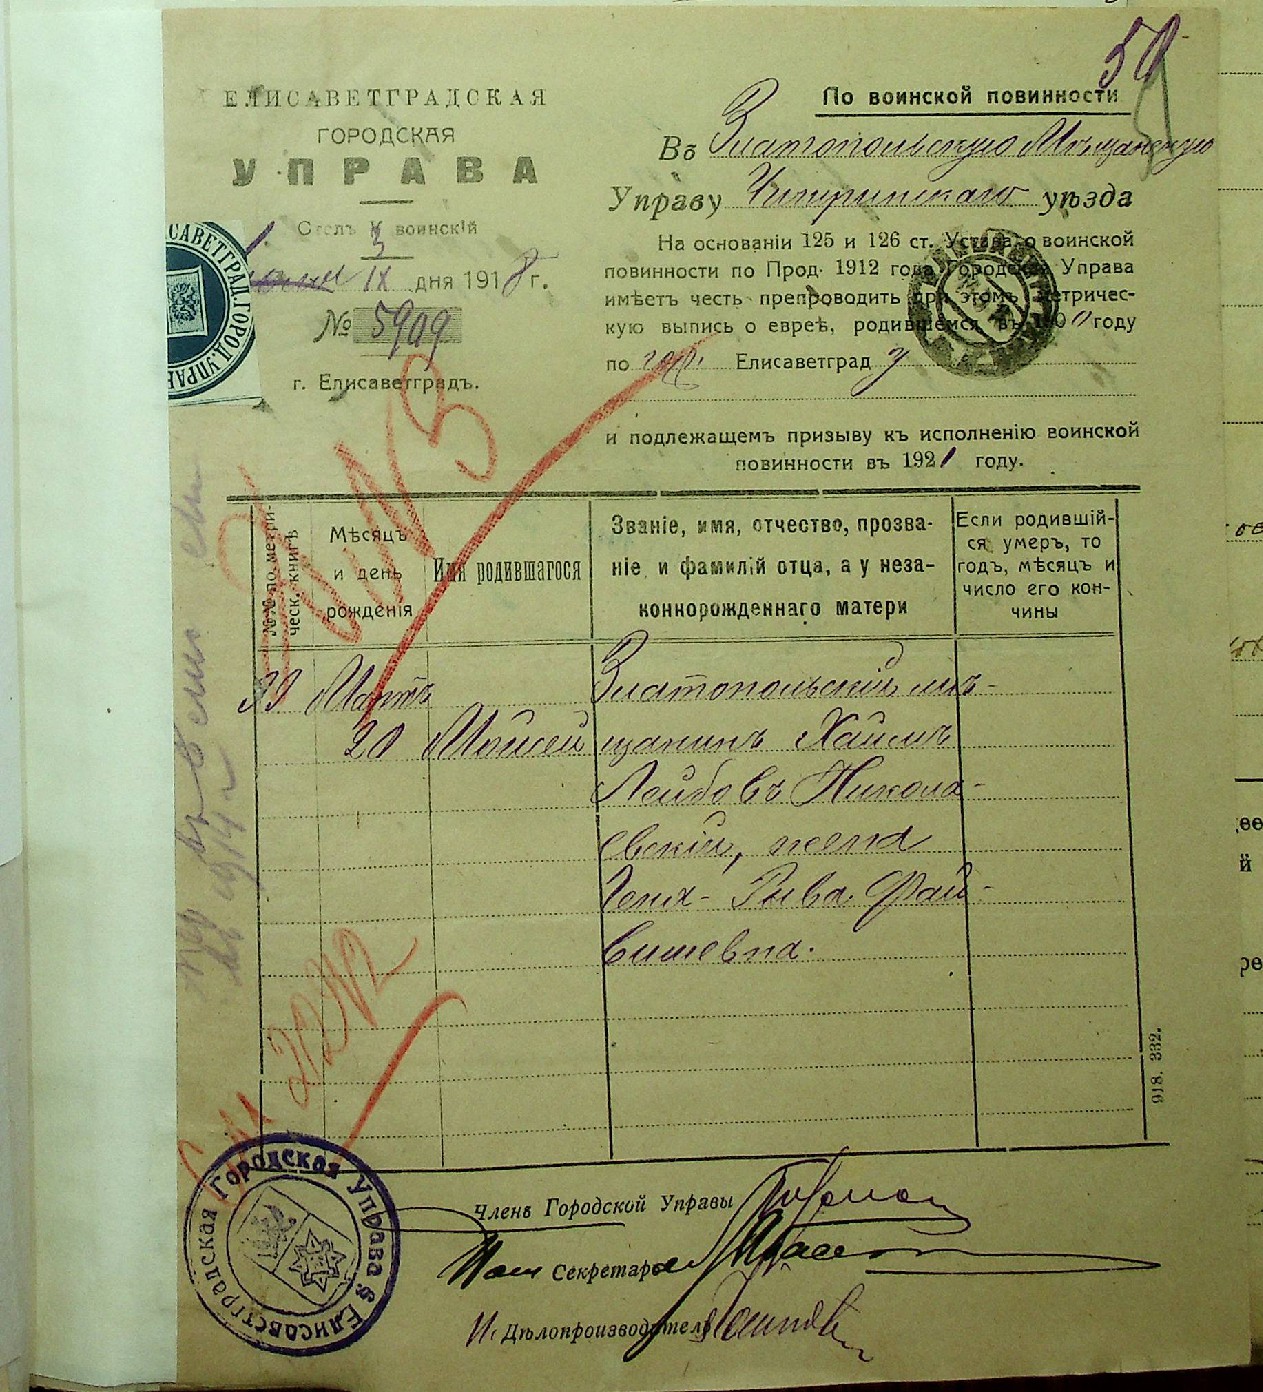 50
ЕЛИСАВЕТГРАДСКАЯ
ГОРОДСКАЯ
УПРАВА
Столъ 3 воинскій
IX дня 1918 г.
№ 5909
г. Елисаветградъ.
По воинской повинности
Въ Златопольскую Мѣщанскую
Управу Чигиринскаго уѣзда
На основаніи 125 и 126 ст. Устава о воинской
повинности по Прод. 1912 года Городская Управа
имѣетъ честь препроводить при этомъ метричес-
кую выпись о евреѣ, родившемся въ 1900 году
по гор. Елисаветграду
и подлежащемъ призыву къ исполненію воинской
повинности въ 1921 году.
№№ по метри-
ческ. книгѣ
Мѣсяцъ
и день
рожденія
Имя родившагося
Званіе, имя, отчество, прозва-
ніе, и фамилій отца, а у неза-
коннорожденнаго матери
Если родившій-
ся умеръ, то
годъ, мѣсяцъ и
число его кон-
чины
99 Мартъ Златопольскій мѣ-
20 Мойсей щанинъ Хаимъ
Лейбовъ Никола-
евскій, жена
Геня-Рыва Фай-
вишевна.
918. 332.
Членъ Городской Управы
Секретаря
И. Дѣлопроизводителя
Елисаветградская Городская Управа